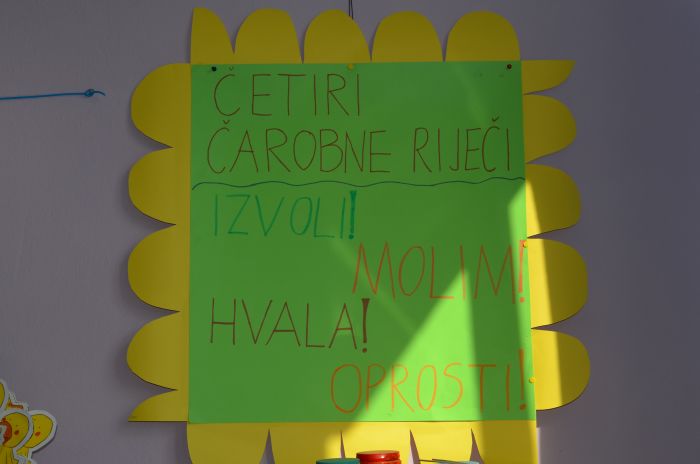 ČETIRI
ČAROBNE RIJEČI
IZVOLI!
MOLIM!
HVALA!
OPROSTI!